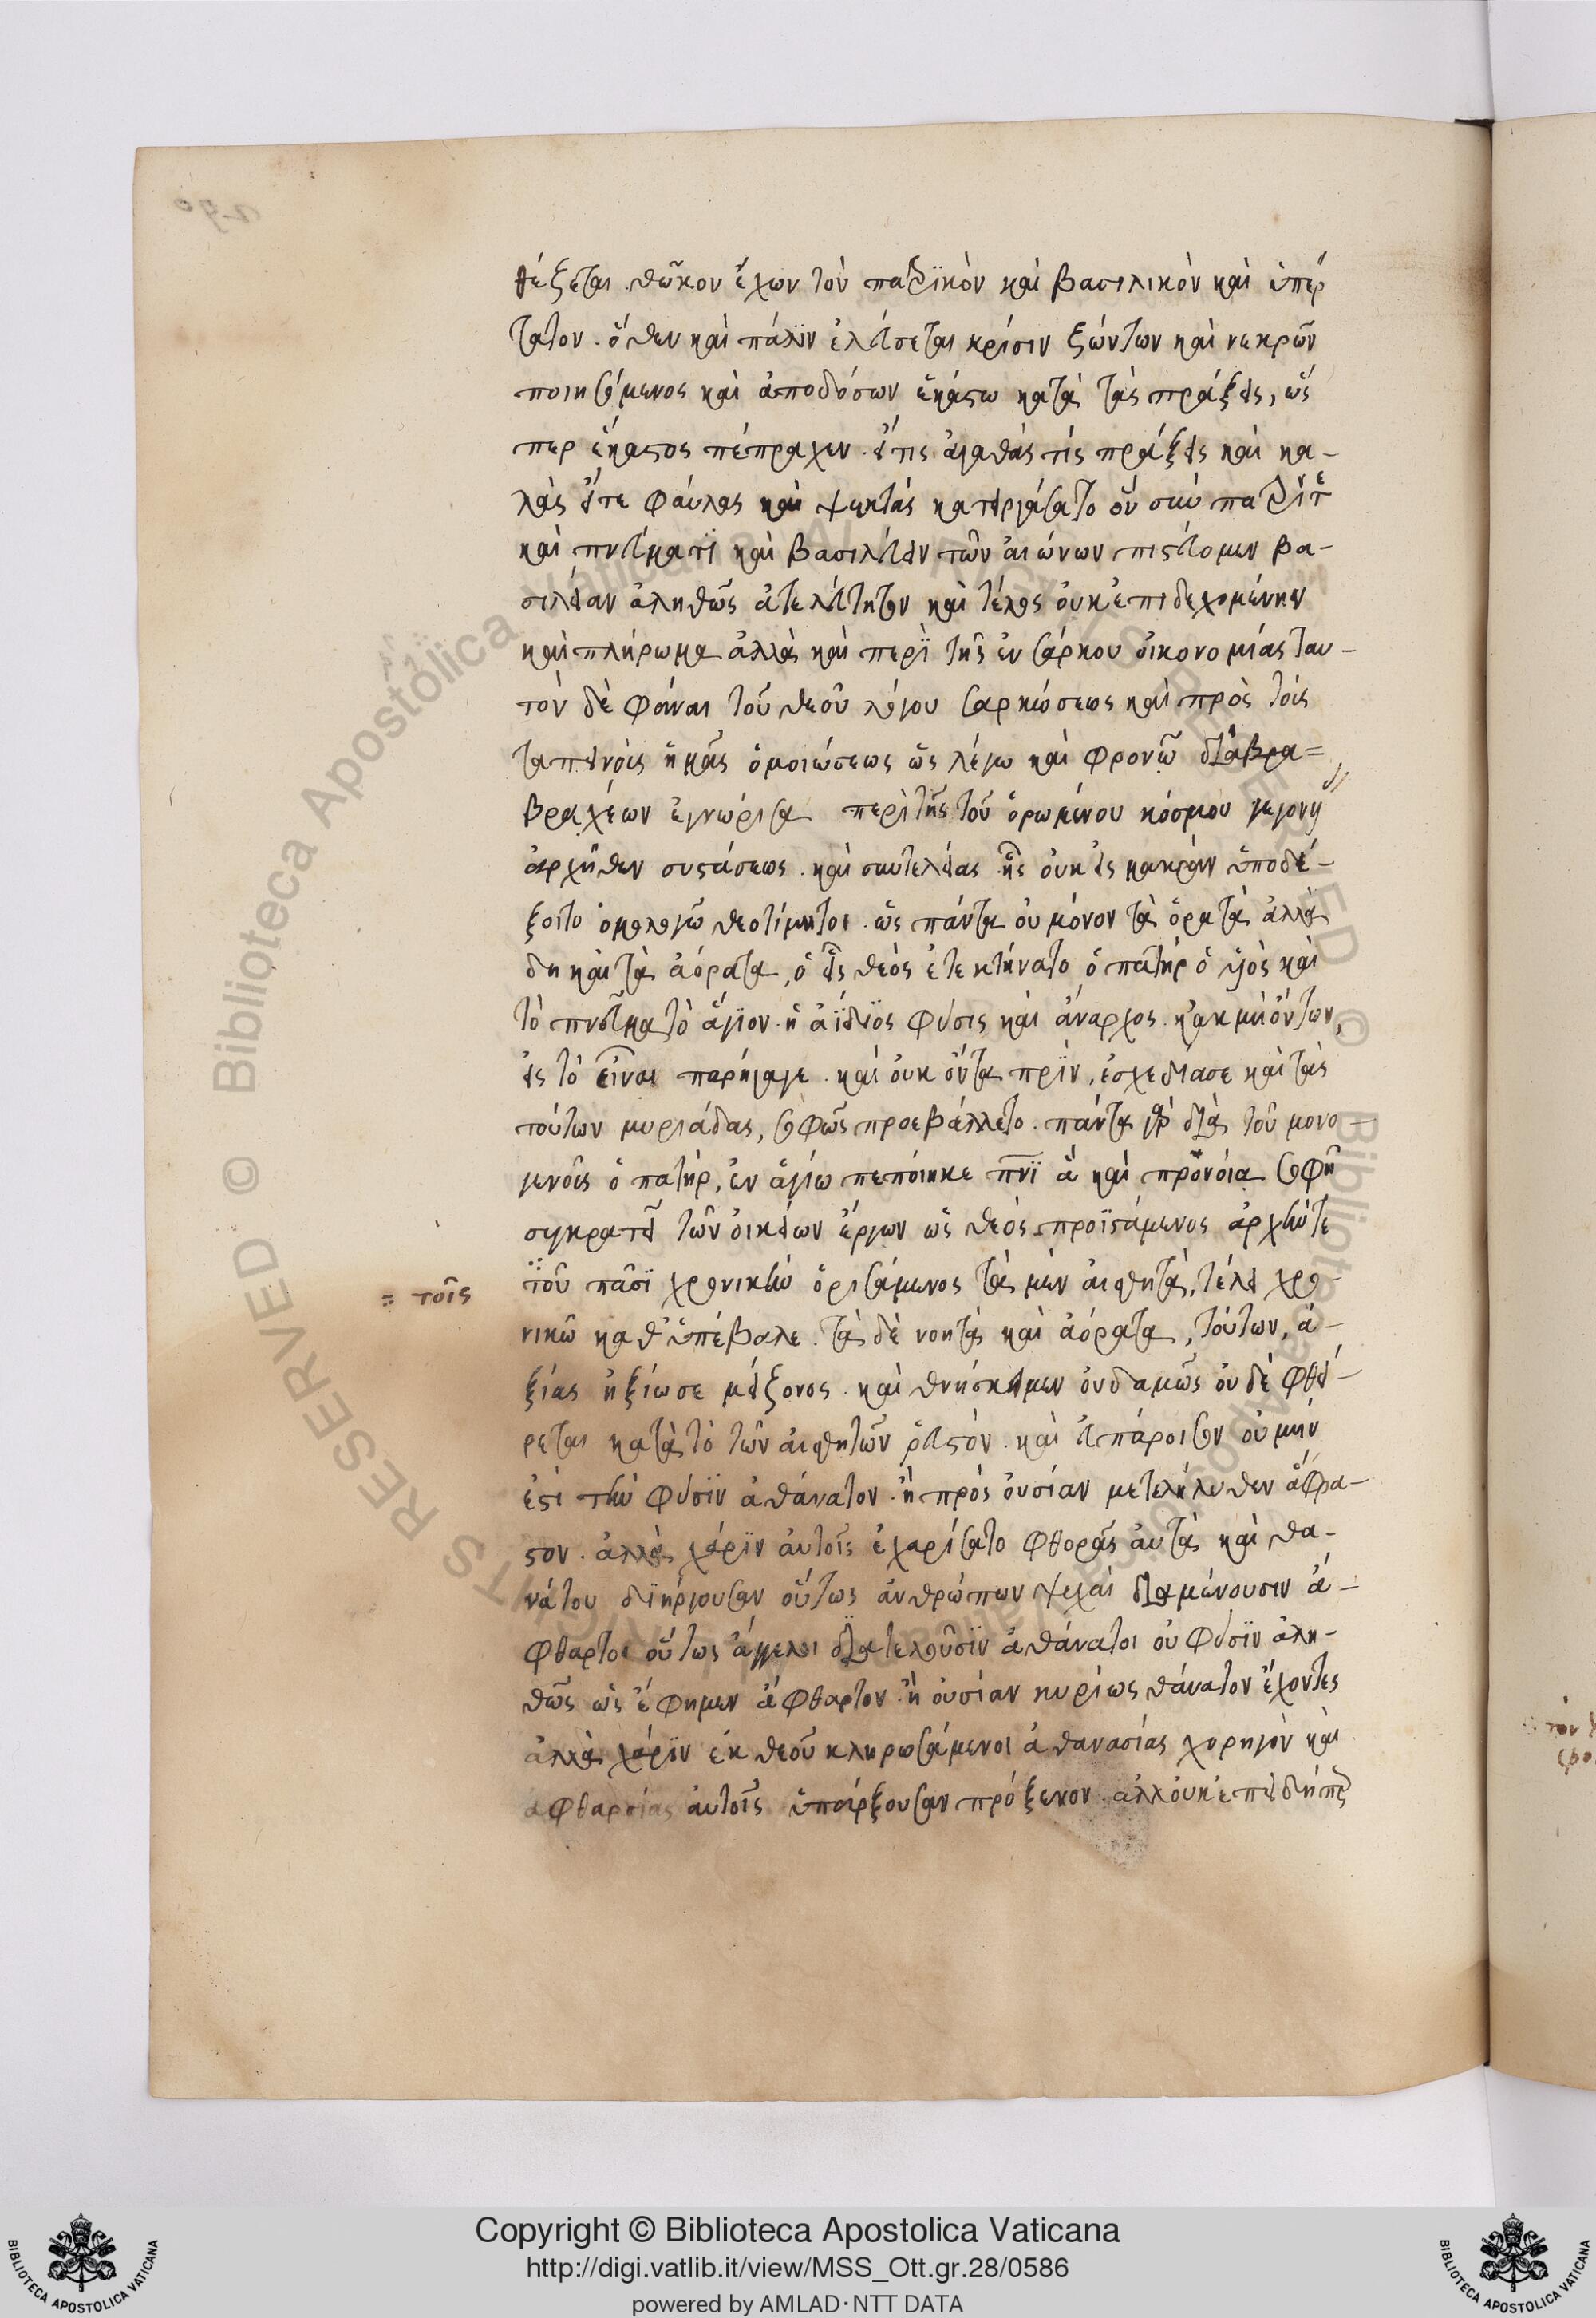 θέξεται. θῶκον ἔχων τὸν πατρϊκὸν καὶ βασιλικὸν καὶ ὑπέρ
τατον. ὅθεν καὶ πάλϊν ἐλεύσεται κρίσιν ζώντων καὶ νεκρῶν
ποιησόμενος καὶ ἀποδώσων ἑκάστω κατὰ τὰς πράξεις, ὥς
περ ἕκαστος πέπραχεν. εἴτις ἀγαθάς τίς πράξεις καὶ κα-
λὰς εἴτε φαύλας καὶ ψεκτάς κατειργάσατο οὗ σὺν πατρΐ τε
καὶ πνεύματϊ καὶ βασιλεύειν τῶν αἰώνων πιστεύομεν βα-
σιλείαν ἀληθῶς ἀτελεύτητον καὶ τέλος οὐκ ἐπιδεχομένην
καὶ πλήρωμα ἀλλὰ καὶ περϊ τῆς ἐν σάρκου οἰκονομίας ταυ-
τόν δὲ φάναι τοῦ θεοῦ λόγου σαρκώσεως καὶ πρὸς τοίς
ταπεινοὶς ἡμᾶς ὁμοιώσεως ὡς λέγω καὶ φρονῶ διὰ βρα=
βραχέων ἐγνώρισα περὶ τῆς τοῦ ὁρωμένου κόσμου
ἀρχῆθεν συστάσεως. καὶ συντελείας ἧς οὐκ εἰς μακρὰν ὑποδέ-
ξοιτο ὁμολογῶ θεοτίμητοι. ὡς πάντα οὐ μόνον τὰ ὁρατὰ ἀλλὰ
δὴ καὶ τὰ ἀόρατα, ὁ εἷς θεός ἐτεκτήνατο ὁ πατὴρ ὁ υἱὸς καὶ
τὸ πνεῦμα τὸ ἅγϊον. ἡ ἀΐδϊος φύσις καὶ ἄναρχος. κἀκ μὴ ὄντων,
εἰς τὸ εἶναι παρήγαγε. καὶ οὐκ ὄντα πρϊν, ἐσχεδίασε καὶ τὰς
τούτων μυριάδας, σοφῶς προεβάλλετο. πάντα γὰρ διὰ τοῦ μονο-
γενοῦς ὁ πατὴρ, ἐν ἁγίω πεποίηκε πνϊ ἃ καὶ προνόια σοφῆ
συγκρατεῖ τῶν οἰκείων ἔργων ὡς θεός προϊστάμενος ἀρχὴν τε
τοῦ πᾶσϊ χρονικὴν ὁρισάμενος τὰ μὲν αἰσθητὰ, τέλει χρο-
= τοῖς
νικῶ καθ' ὑπέβαλε. τὰ δὲ νοητὰ καὶ ἀόρατα, τούτων, ἀ-
ξίας ἠξίωσε μείζονος. καὶ θνήσκειμεν οὐδαμῶς οὐδὲ φθεί-
ρεται κατὰ τὸ τῶν αἰσθητῶν ῥευστὸν. καὶ εὐπάροισον οὐ μὴν
ἐστὶ τὴν φύσϊν ἀθάνατον. ἢ πρὸς οὐσίαν μετελήλυθεν ἄφρα-
στον. ἀλλὰ χάρϊν αὐτοῖς ἐχαρίσατο φθορᾶς αὐτὰ καὶ θα-
νάτου διήργουσαν οὕτως ἀνθρώπων ψυχαὶ διαμένουσιν ἄ-
φθαρτοι οὕτως ἄγγελοι διατελοῦσϊν ἀθάνατοι οὐ φύσϊν ἀλη-
θῶς ὡς ἔφημεν ἄφθαρτον. ἢ οὐσίαν κυρίως θάνατον ἔχοντες
ἀλλὰ χάρϊν ἐκ θεοῦ κληρωσάμενοι ἀθανασίας χορηγὸν καὶ
ἀφθαρσίας αὐτοῖς ὑπάρξουσαν πρόξενον. ἀλλ οὐκ ἐπειδήπερ